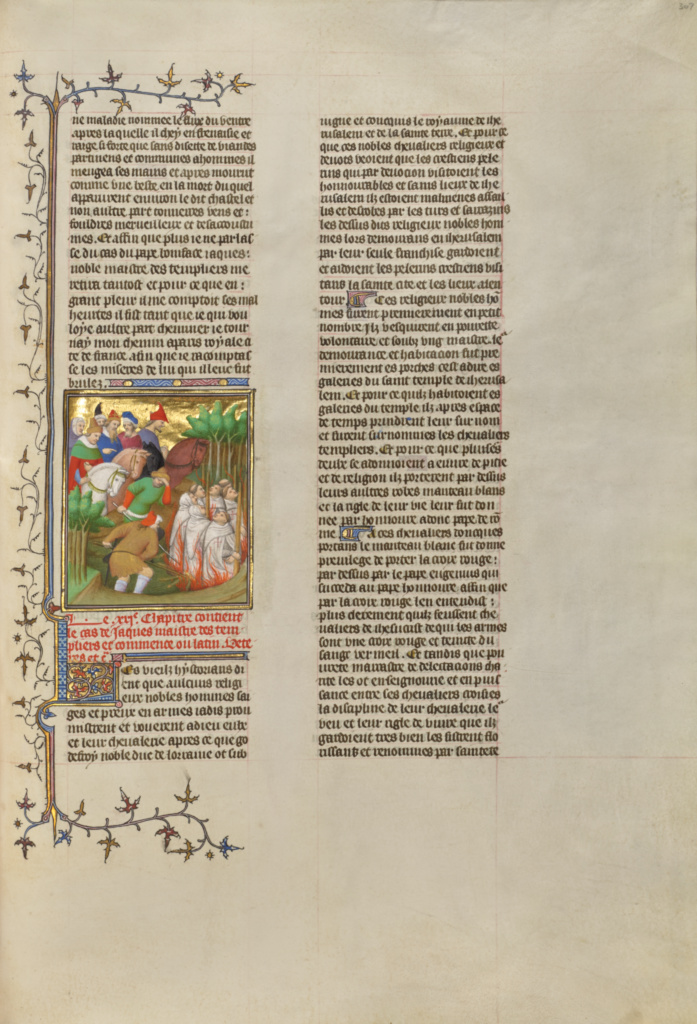 ne maladie nommee le flux du ventre
apres laquelle il chey en frenaisie et
raige si forte que sans disette de viandes
partinens et communes a hommes il
mengea ses mains et apres mourut
comme une beste, en la mort du quel
apparurent environ le dit chastel et
non aultre part tonnerres vens et
fouldres merveilleux et desacoustu
mes. Et affin que plus ie ne parlas
se du cas du pape boniface iaques
noble maistre des templiers me
retira tantost et pour ce que en
grant pleur il me comptoit ses mal
heurtes il fist tant que ie qui vou
loye aultre part cheminer ie tour
nay mon chemin a paris royale ci
te de france. afin que ie racomptas
se les miseres de lui qui illeuc fut
brulez.
Le .xxi.e Chapitre contient
le cas de Jaques maistre des tem
pliers et commence ou latin. Vete
res et c.
Les vieilz hystorians di
ent que aulcuns religi
eux nobles hommes sai
ges et preux en armes iadis prou
mistrent et vouerent a dieu eulx
et leur chevalerie apres ce que go
deffroy noble duc de lorraine ot sub
iugue et conequis le royaume de ihe
rusalem et de la sainte terre. Et pour ce
que ces nobles chevaliers religieux et
devots veoient que les crestiens pele
rins qui par devocion visitoient les
honnourables et sains lieux de ihe
rusalem ilz estoient malmenes assail
lis et desrobes par les turs et sarrazins
les dessus dits religieux nobles hom
mes lors demourans en iherusalem
par leur seule franchise gardoient
et aidoient les pelerins crestiens visi
tans la sainte cite et les lieux alen
tour Ces religieux nobles hom
mes furent premierement en petit
nombre. Ilz vesquirent en pourete
voluntaire. et soubz ung maistre. le
demourance et habitacion fut pre
mierement es porches cest a dire es
galeries du saint temple de iherusa
lem. Et pour ce quilz habitoient es
galeries du temple ilz apres espace
de temps prindrent leur sur nom
et furent surnommes les chevaliers
templiers. Et pour ce que pluseurs
deulx se adonnoient a euvre de pitie
et de religion ilz porterent par dessus
leurs aultres robes manteau blanc
et la rigle de leur vie leur fut don
nee par honnoure adonc pape de ro
me A ces chevaliers doncques
portans le manteau blanc fut donne
previlege de porter la croix rouge
par dessus par le pape eugenius qui
succeda au pape honnoure affin que
par la croix rouge len entendist
plus clerement quilz feussent che
valiers de ihesucrist de qui les armes
sont une croix rouge et teinte du
sanc vermeil. Et tandis que pou
urete marrastre de delectacions char
nelles ot enseigneurie et en puis
sance entre ses chevaliers croisies
la discipline de leur chevalerie le
veu et leur rigle de vivre que ilz
gardoient tres bien les firent flo
rissans et renommes par saintete